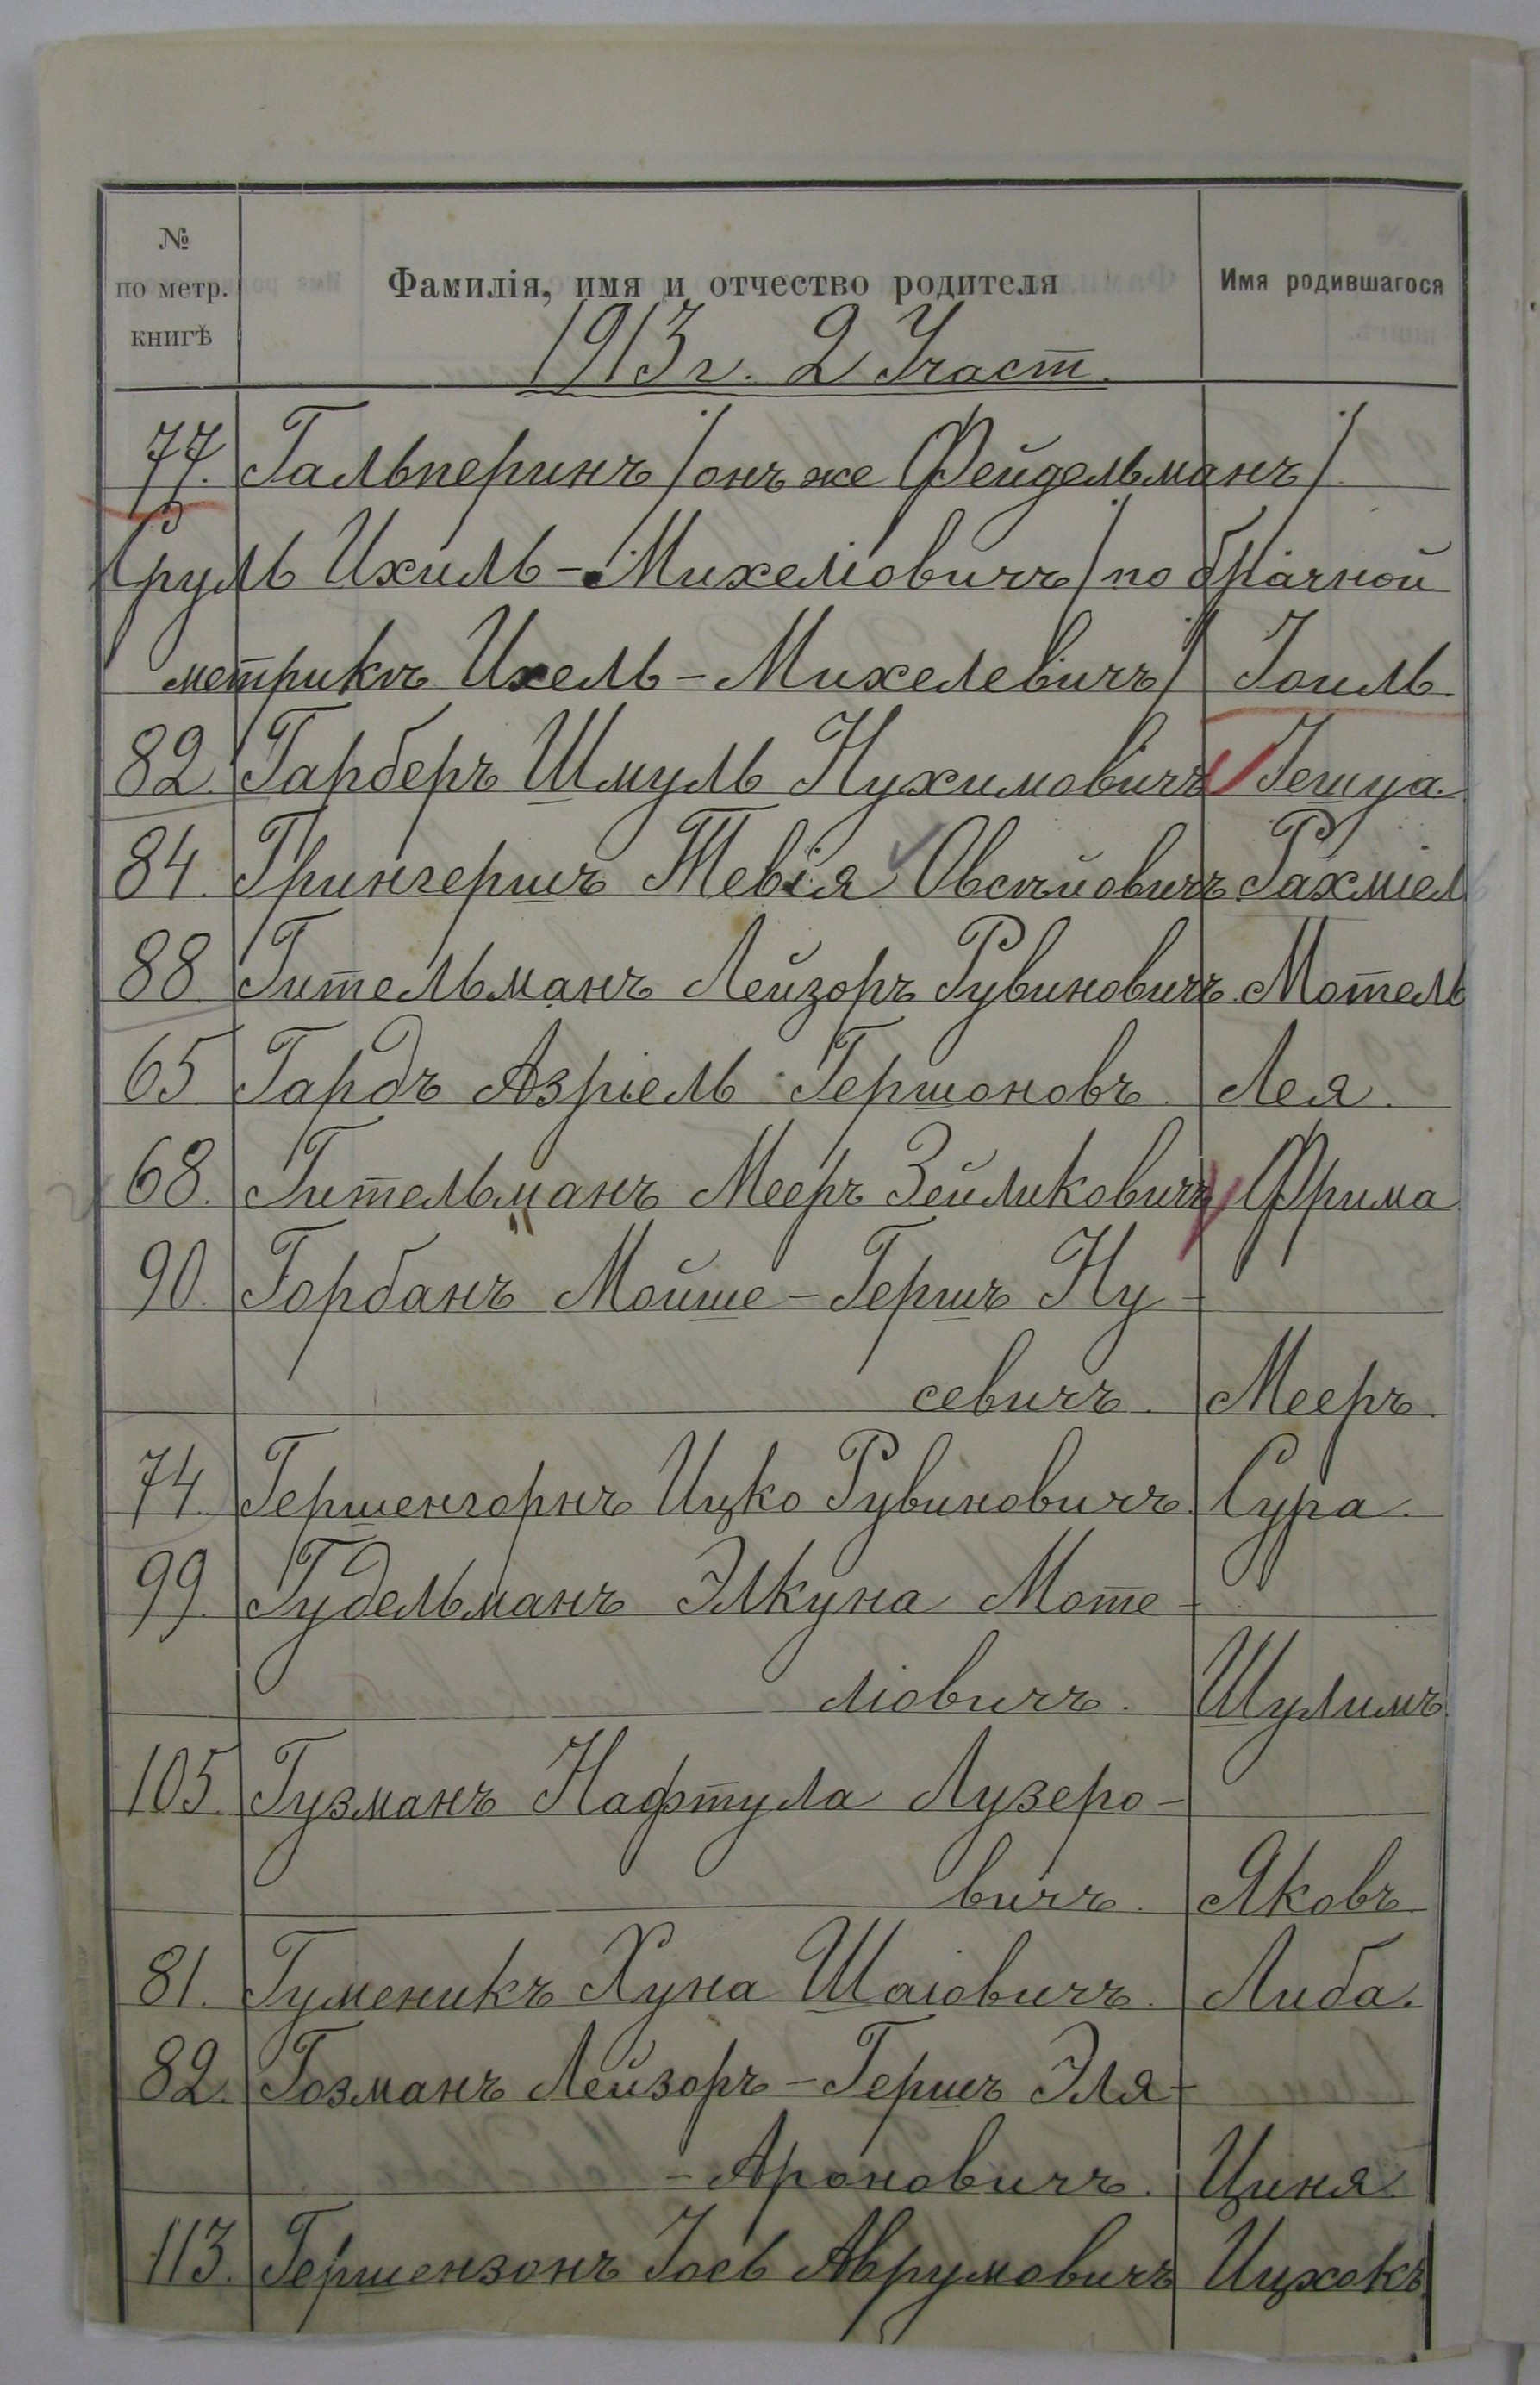 № по метр. книгѣ | Фамилія, имя и отчество родителя | Имя родившагося
1913 г. 2 Участ.
77. Гальперинъ /онъ же Фейдельманъ/
Сруль Ихиль-Михеліовичъ /по брачной
метрикѣ Ихель-Михелевичъ/ Іоиль.
82. Гарберъ Шмуль Нухимовичъ Іешуа.
84. Грингершъ Тевія Овсѣйовичъ Рахміел
88. Гительманъ Лейзоръ Рувиновичъ. Мотель
65 Гардъ Азріель Гершоновъ. Лея.
68. Гительманъ Мееръ Зейликовичъ Фрима
90. Горбанъ Мойше-Гершъ Ну-
севичъ. Мееръ.
74. Гершенгорнъ Ицко Рувиновичъ. Сура.
99. Гудельманъ Элкуна Моте-
ліовичъ. Шулимъ
105. Гузманъ Нафтула Лузеро-
вичъ. Яковъ
81. Гуменикъ Хуна Шаіовичъ. Либа.
82. Гозманъ Лейзоръ-Гершъ Эля-
-Ароновичъ. Циня.
113. Гершензонъ Іось Аврумовичъ Ицхокъ